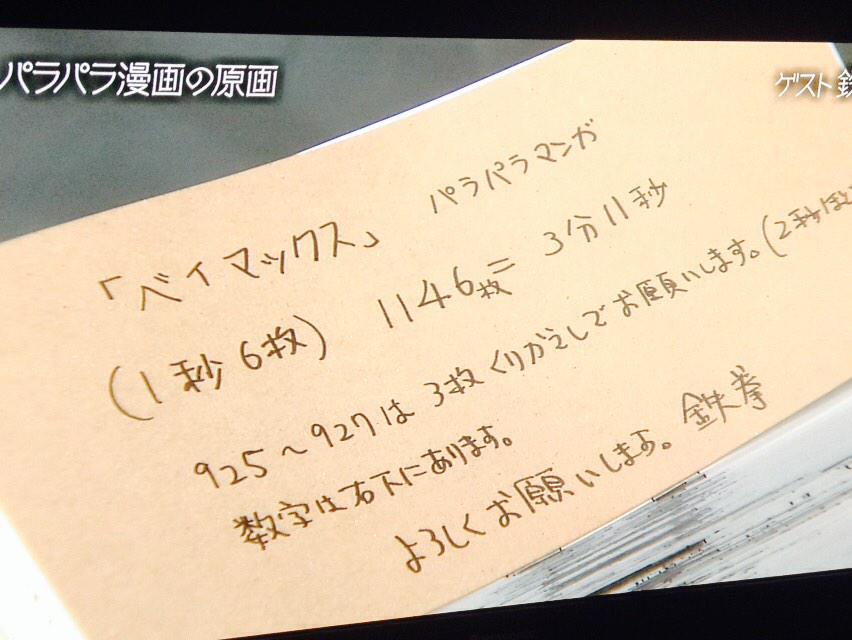 パラパラ漫画の原画
ゲスト 鉄
「ベイマックス」 パラパラマンガ
(1秒6枚) 1146枚=3分11秒
925~927は3枚くりかえしでお願いします。(2秒ほど
数字は右下にあります。
よろしくお願いします。鉄拳